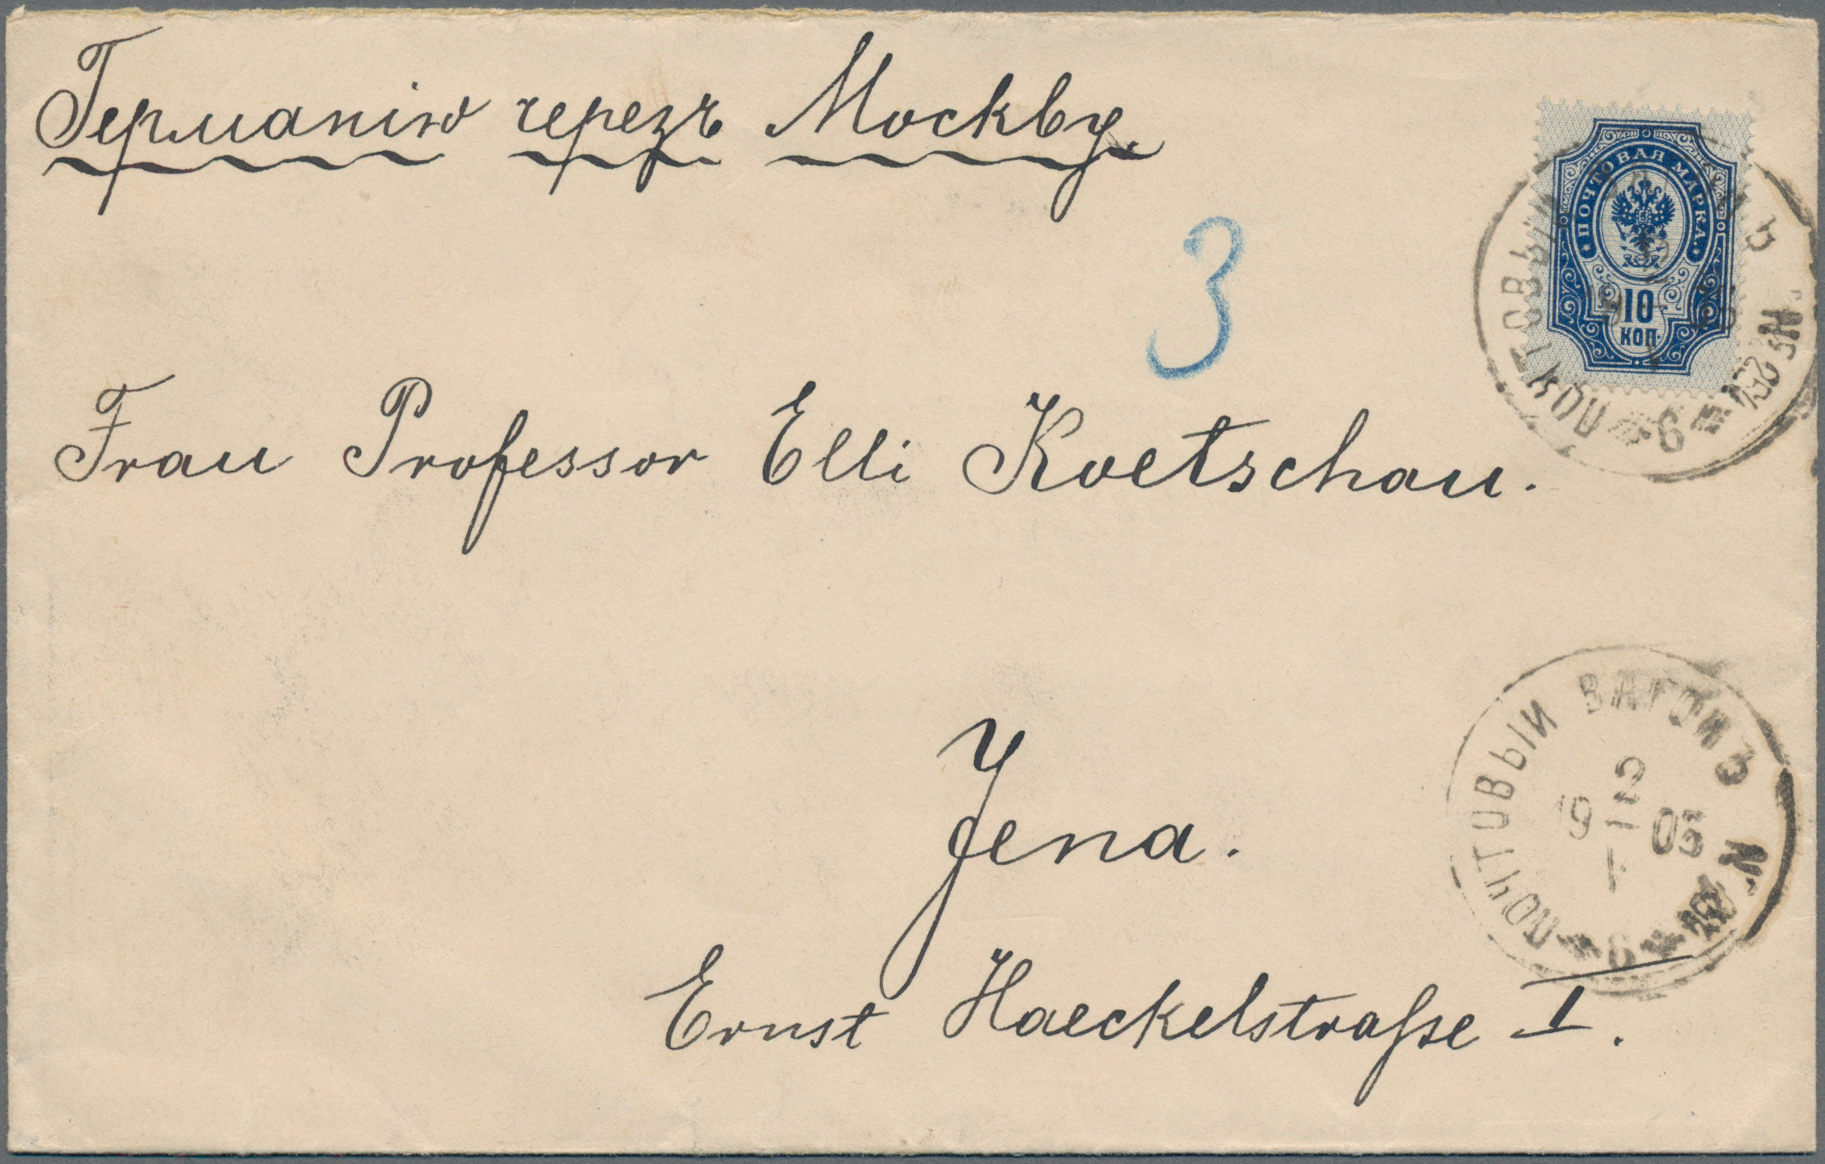 Германію черезъ Москву.
ПОЧТОВАЯ МАРКА
10
КОП.
ПОЧТОВЫЙ ВАГОНЪ
6
3
Frau Professor Elli Koetschau.
ПОЧТОВЫЙ ВАГОНЪ
2
19 05
I
6
Jena.
Ernst Haeckelstraße I.